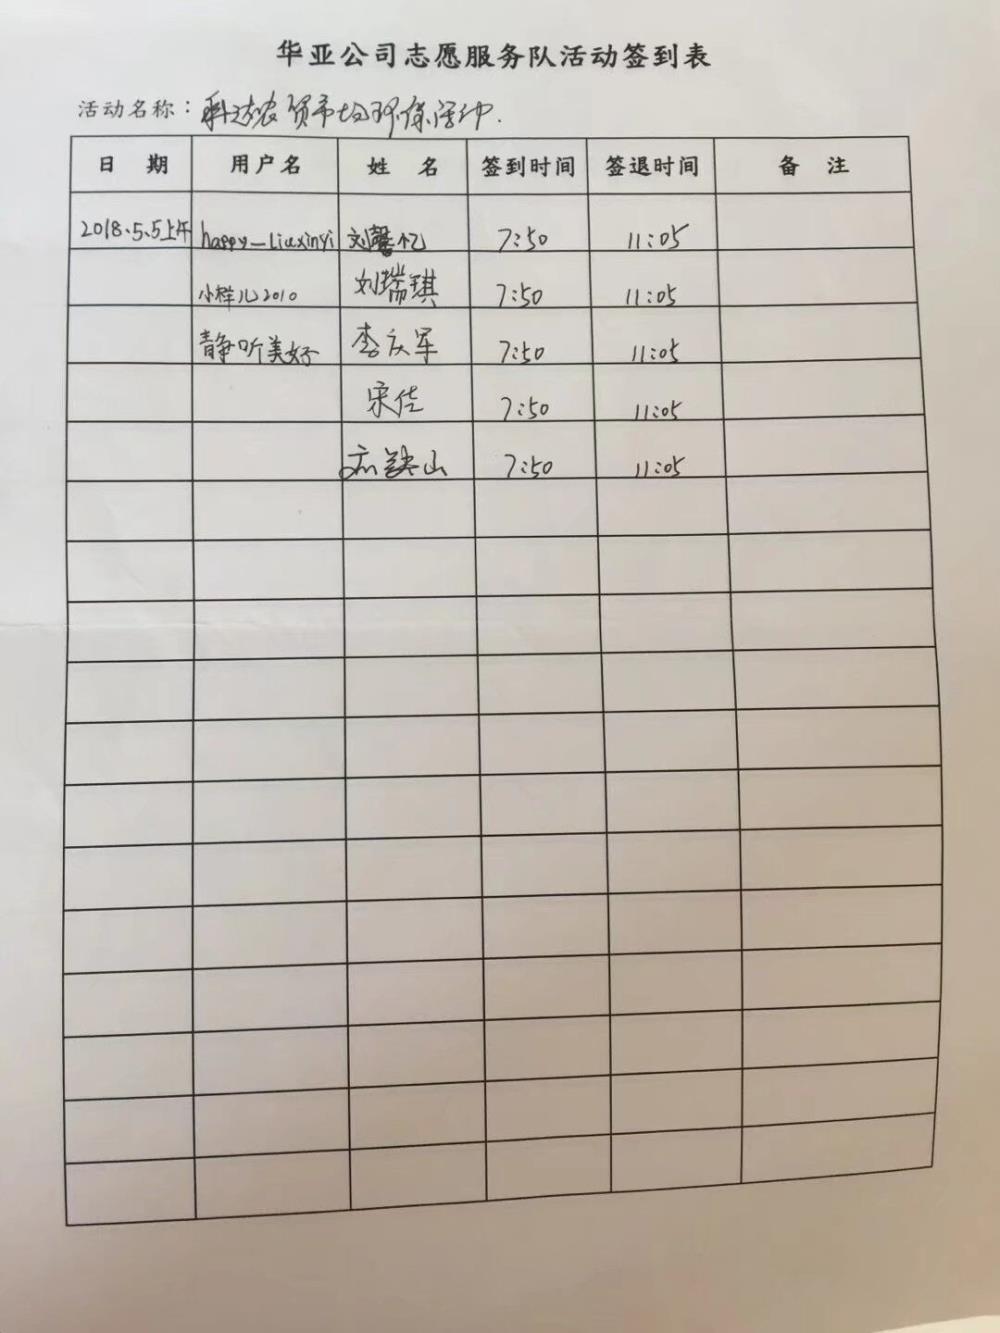 华亚公司志愿服务队活动签到表
活动名称：科达农贸市场环保活动.
日 期 用户名 姓 名 签到时间 签退时间 备 注
2018.5.5上午 happy_Liuxinyi 刘馨忆 7:50 11:05
小样儿2010 刘瑞琪 7:50 11:05
静听美好 李庆军 7:50 11:05
宋佳 7:50 11:05
山 7:50 11:05